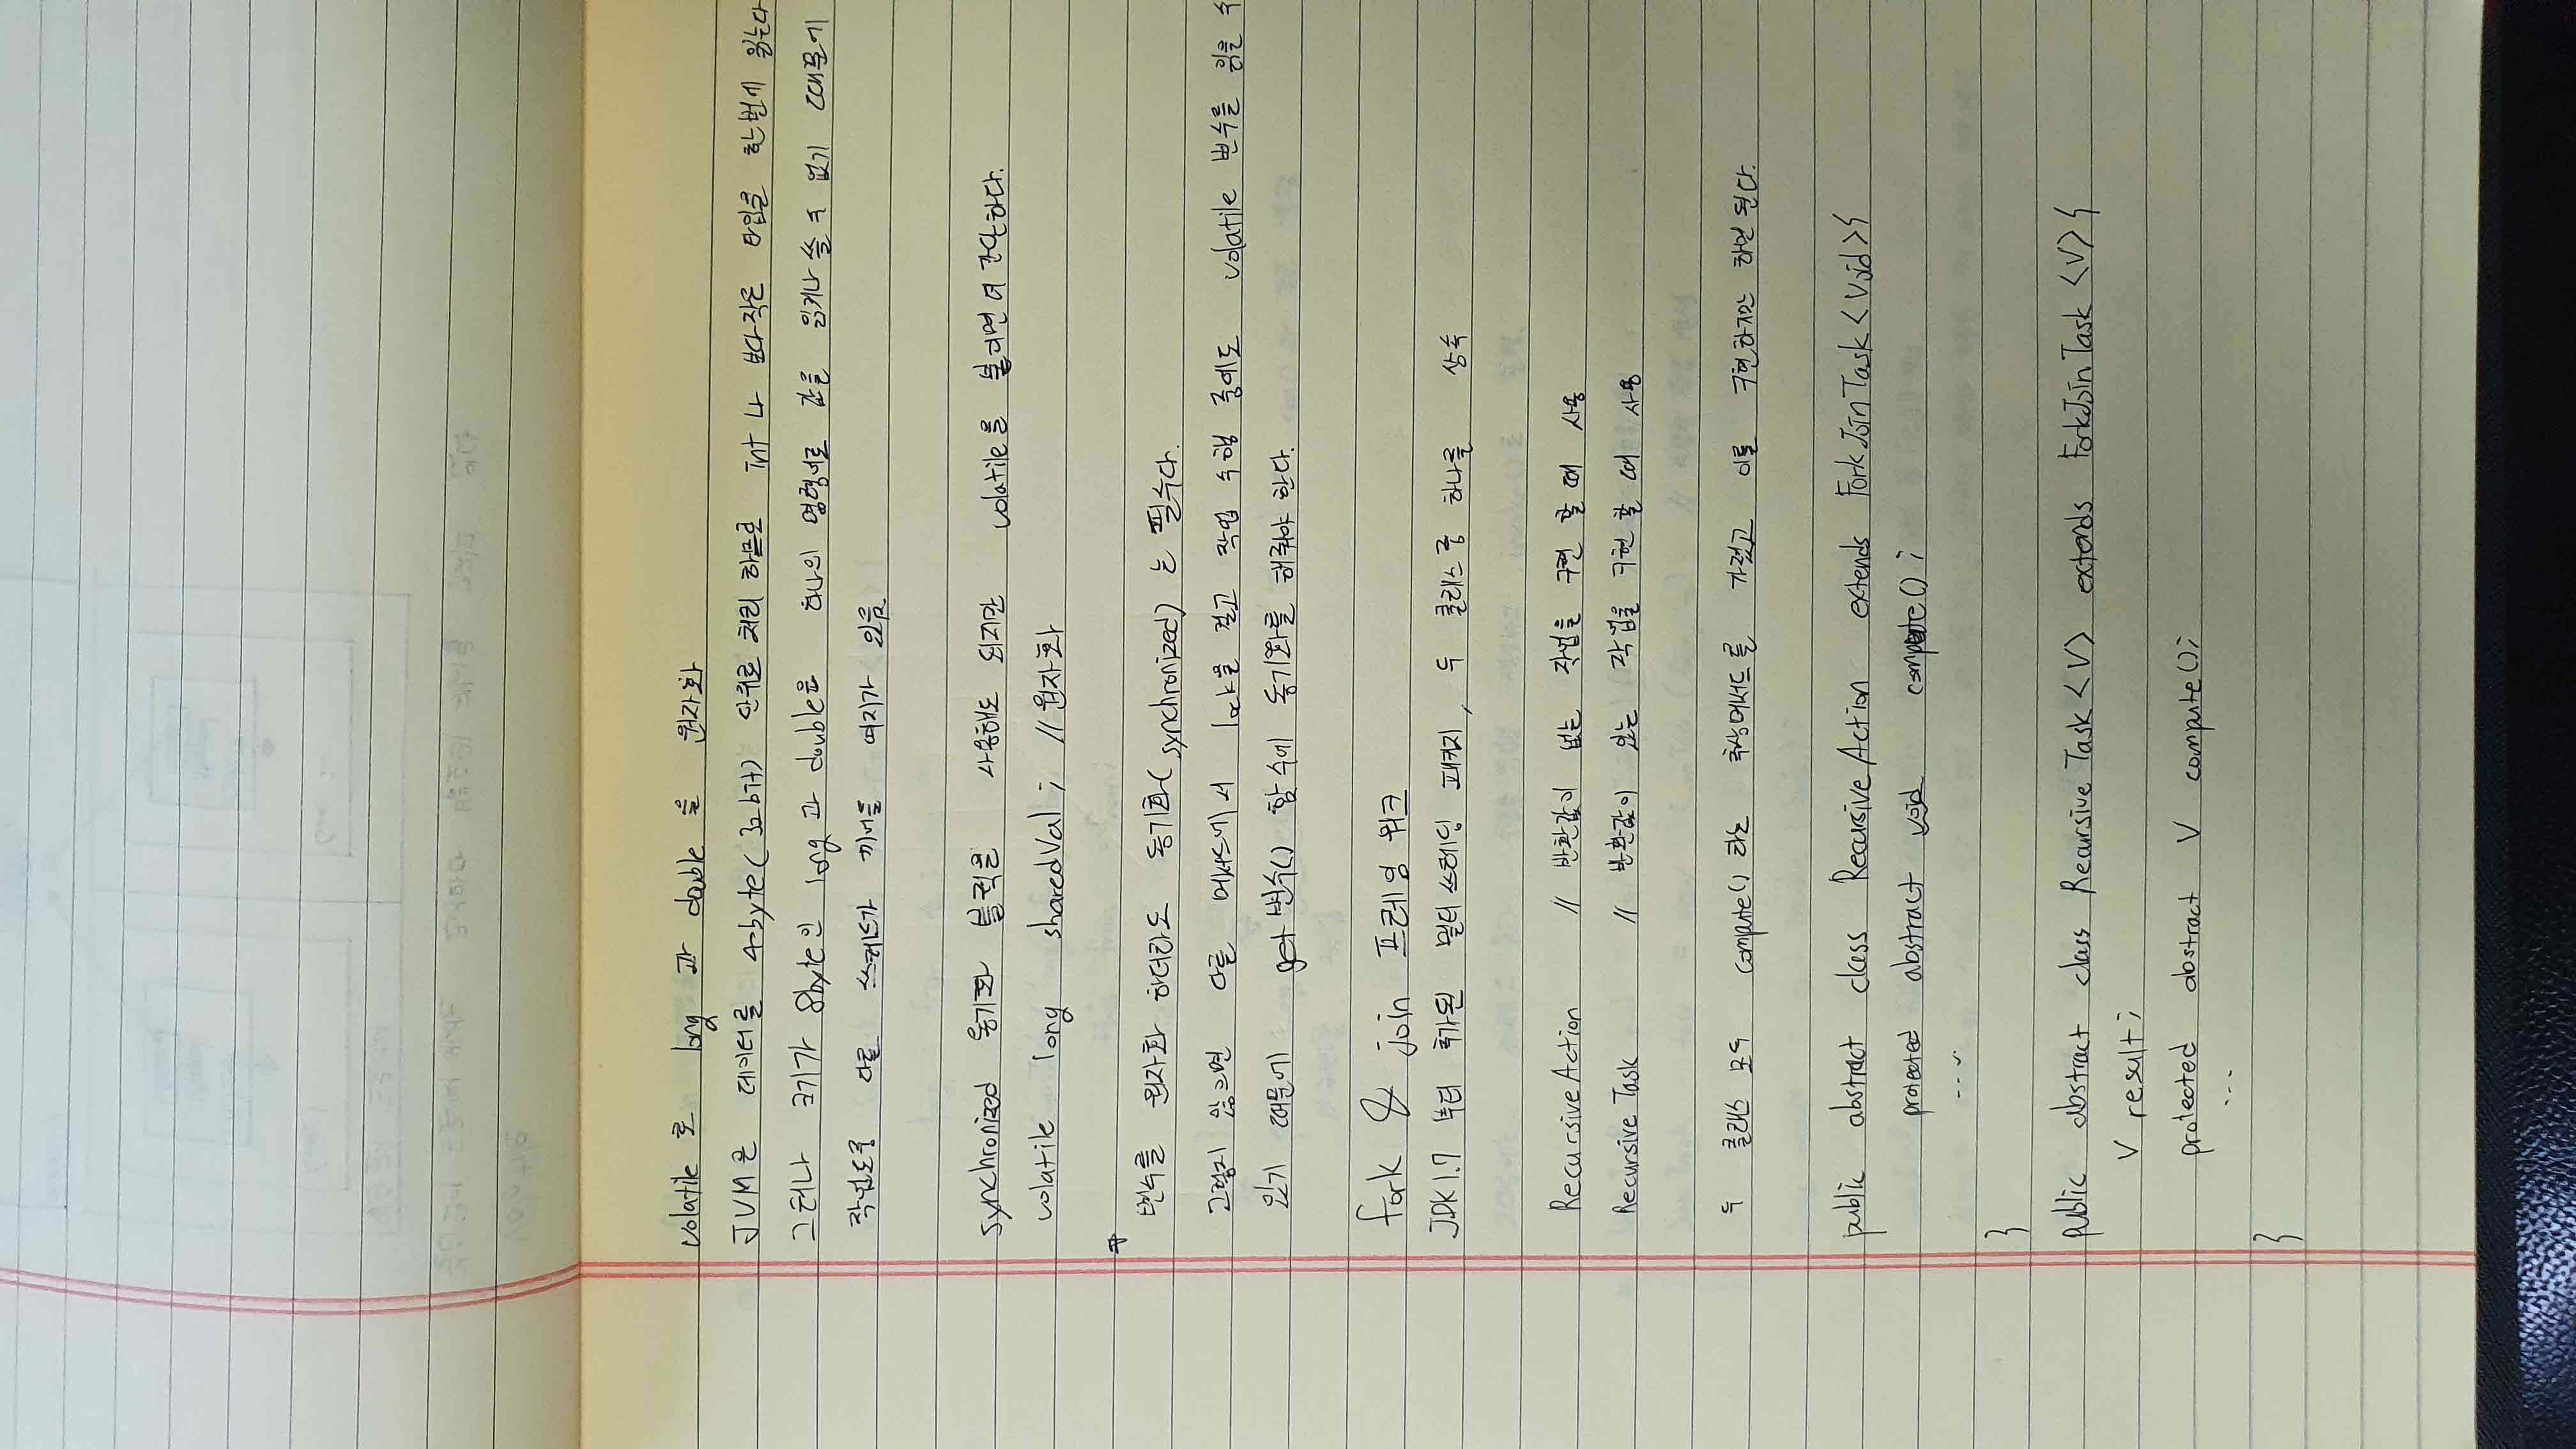 volatile 로 long 과 double 을 원자화
JVM은 데이터를 4byte(32bit) 단위로 처리 하므로 int 나 보다작은 타입을 한번에 읽는다
그러나 크기가 8byte인 long 과 double은 하나의 명령어로 값을 읽거나 쓸 수 없기 때문에
작업도중 다른 쓰레드가 끼어들 여지가 있음
synchronized 동기화 블럭을 사용해도 되지만 volatile을 붙이면 더 간단하다.
volatile long sharedVal; // 원자화
변수를 원자화 하더라도 동기화(synchronized) 는 필수다.
그렇지 않으면 다른 메서드에서 lock을 걸고 작업 수행 중에도 volatile 변수를 읽을 수
있기 때문에 get변수() 함수에 동기화를 해줘야 한다.
fork & join 프레임 워크
JDK1.7 부터 추가된 멀티 쓰레딩 패키지, 두 클래스 중 하나를 상속
RecursiveAction // 반환값이 없는 작업을 구현 할 때 사용
Recursive Task // 반환값이 있는 작업을 구현 할 때 사용
두 클래스 모두 compute() 라는 추상메서드를 가졌고 이를 구현하지만 하면 된다.
public abstract class Recursive Action extends ForkJoinTask<Void>{
protected abstract void compute();
...
}
public abstract class Recursive Task<V> extends ForkJoinTask<V>{
V result;
protected abstract V compute();
...
}